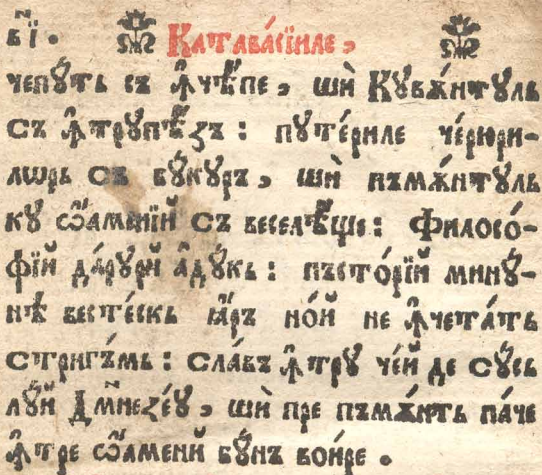 вⷩ҇і. Катава́сїиле,
чепꙋ́ть съ ꙟ҆чѣ́пе, шѝ Кꙋвѫ́нтꙋль
съ ꙟ҆трꙋпѣ́ѕъ: пꙋте́риле че́рюри-
лѡрь съ бꙋ́кꙋръ, шѝ пъмѫ́нтꙋль
кꙋ ѻ҆а́менїй съ веселѣ́ще: Филосо́-
фїй да́рꙋрй а҆дꙋ́кь: пъсто́рїй минꙋ́-
нѣ весте́скь ꙗ҆ръ но́й не ꙟ҆чета́ть
стрига́мь: сла́въ ꙟ҆трꙋ че́й де сꙋ́сь
лꙋ́й Дмⷩ҇еѕе́ꙋ, шѝ пре пъмѫ́нть па́че
ꙟ҆тре ѻ҆а́менй бꙋ́нъ вои́ре.